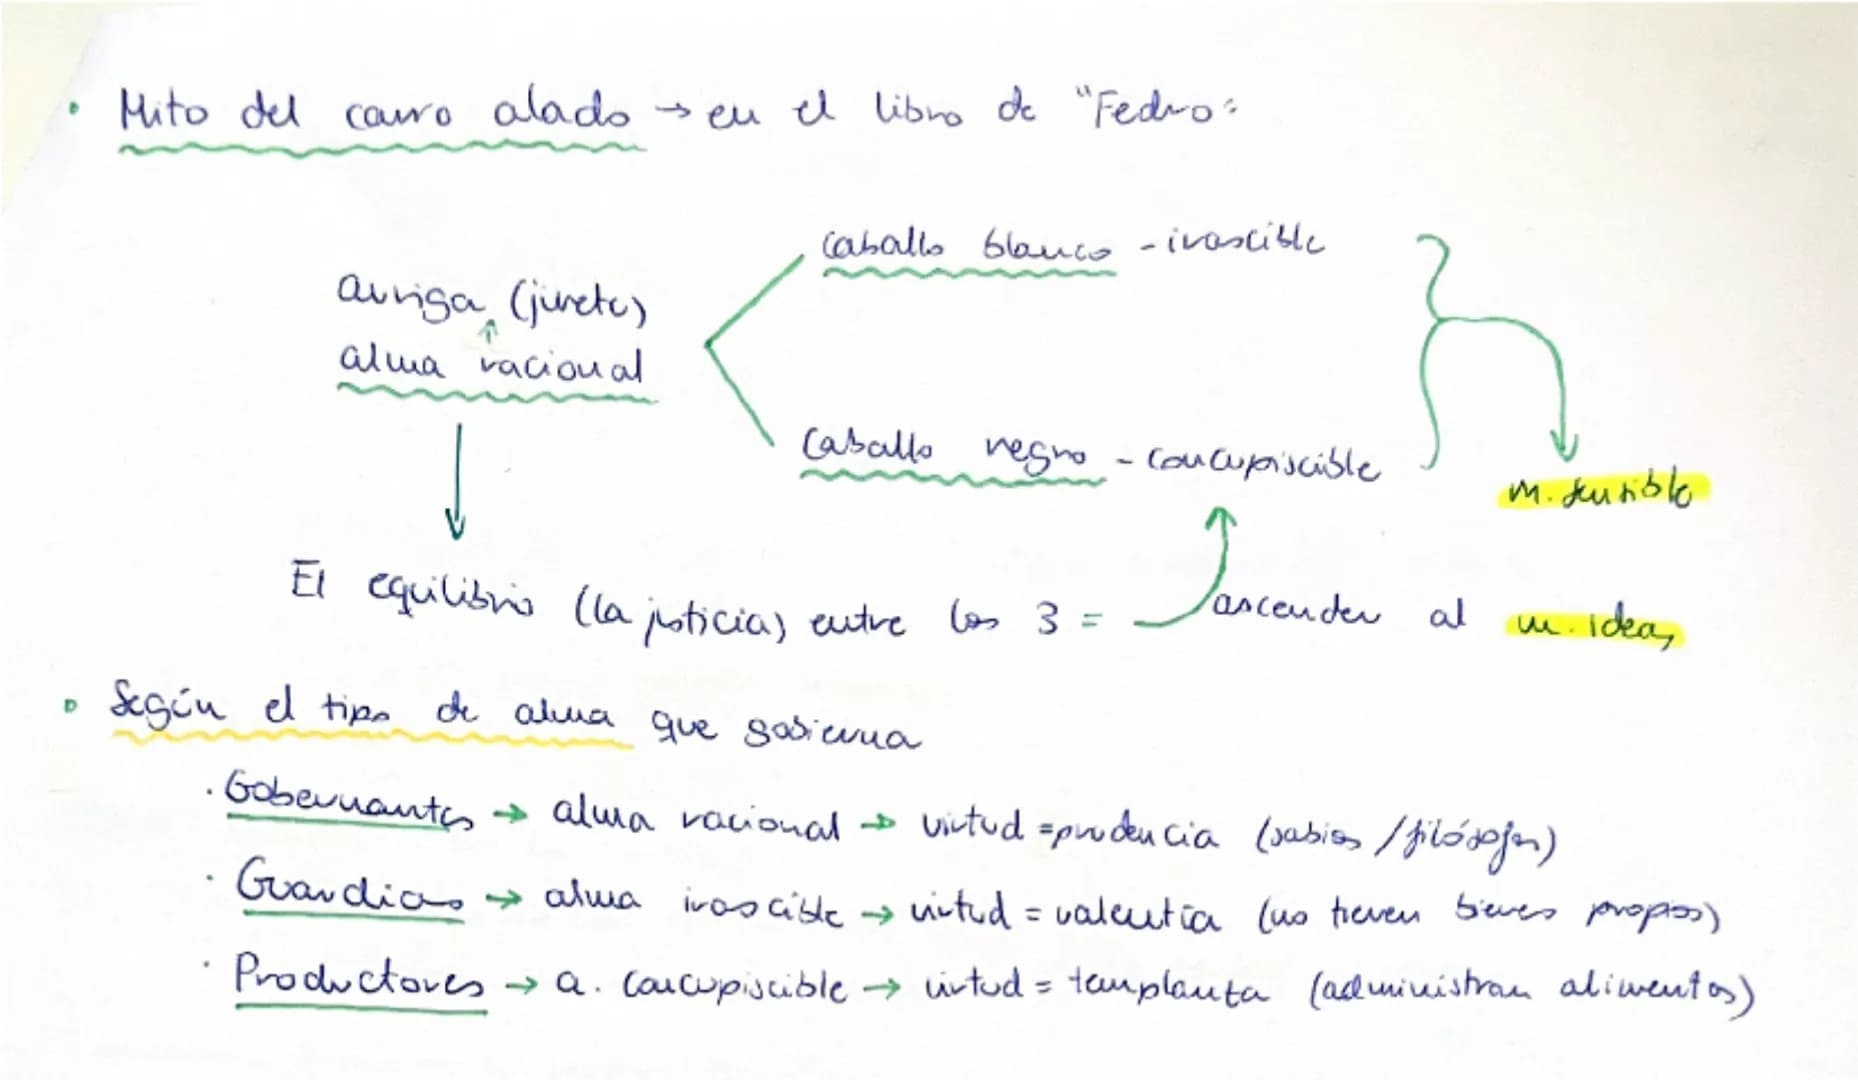 • Mito del carro alado → en el libro de "Fedro:
caballo blanco - irascible
auriga (jinete)
↑
alma racional
caballo negro - concupiscible
m. sensible
El equilibrio (la justicia) entre los 3 = ascender al m. ideas
• Según el tipo de alma que gobierna
· Gobernantes → alma racional → virtud = prudencia (sabios / filósofos)
· Guardias → alma irascible → virtud = valentía (no tienen bienes propios)
· Productores → a. concupiscible → virtud = templanza (administran alimentos)